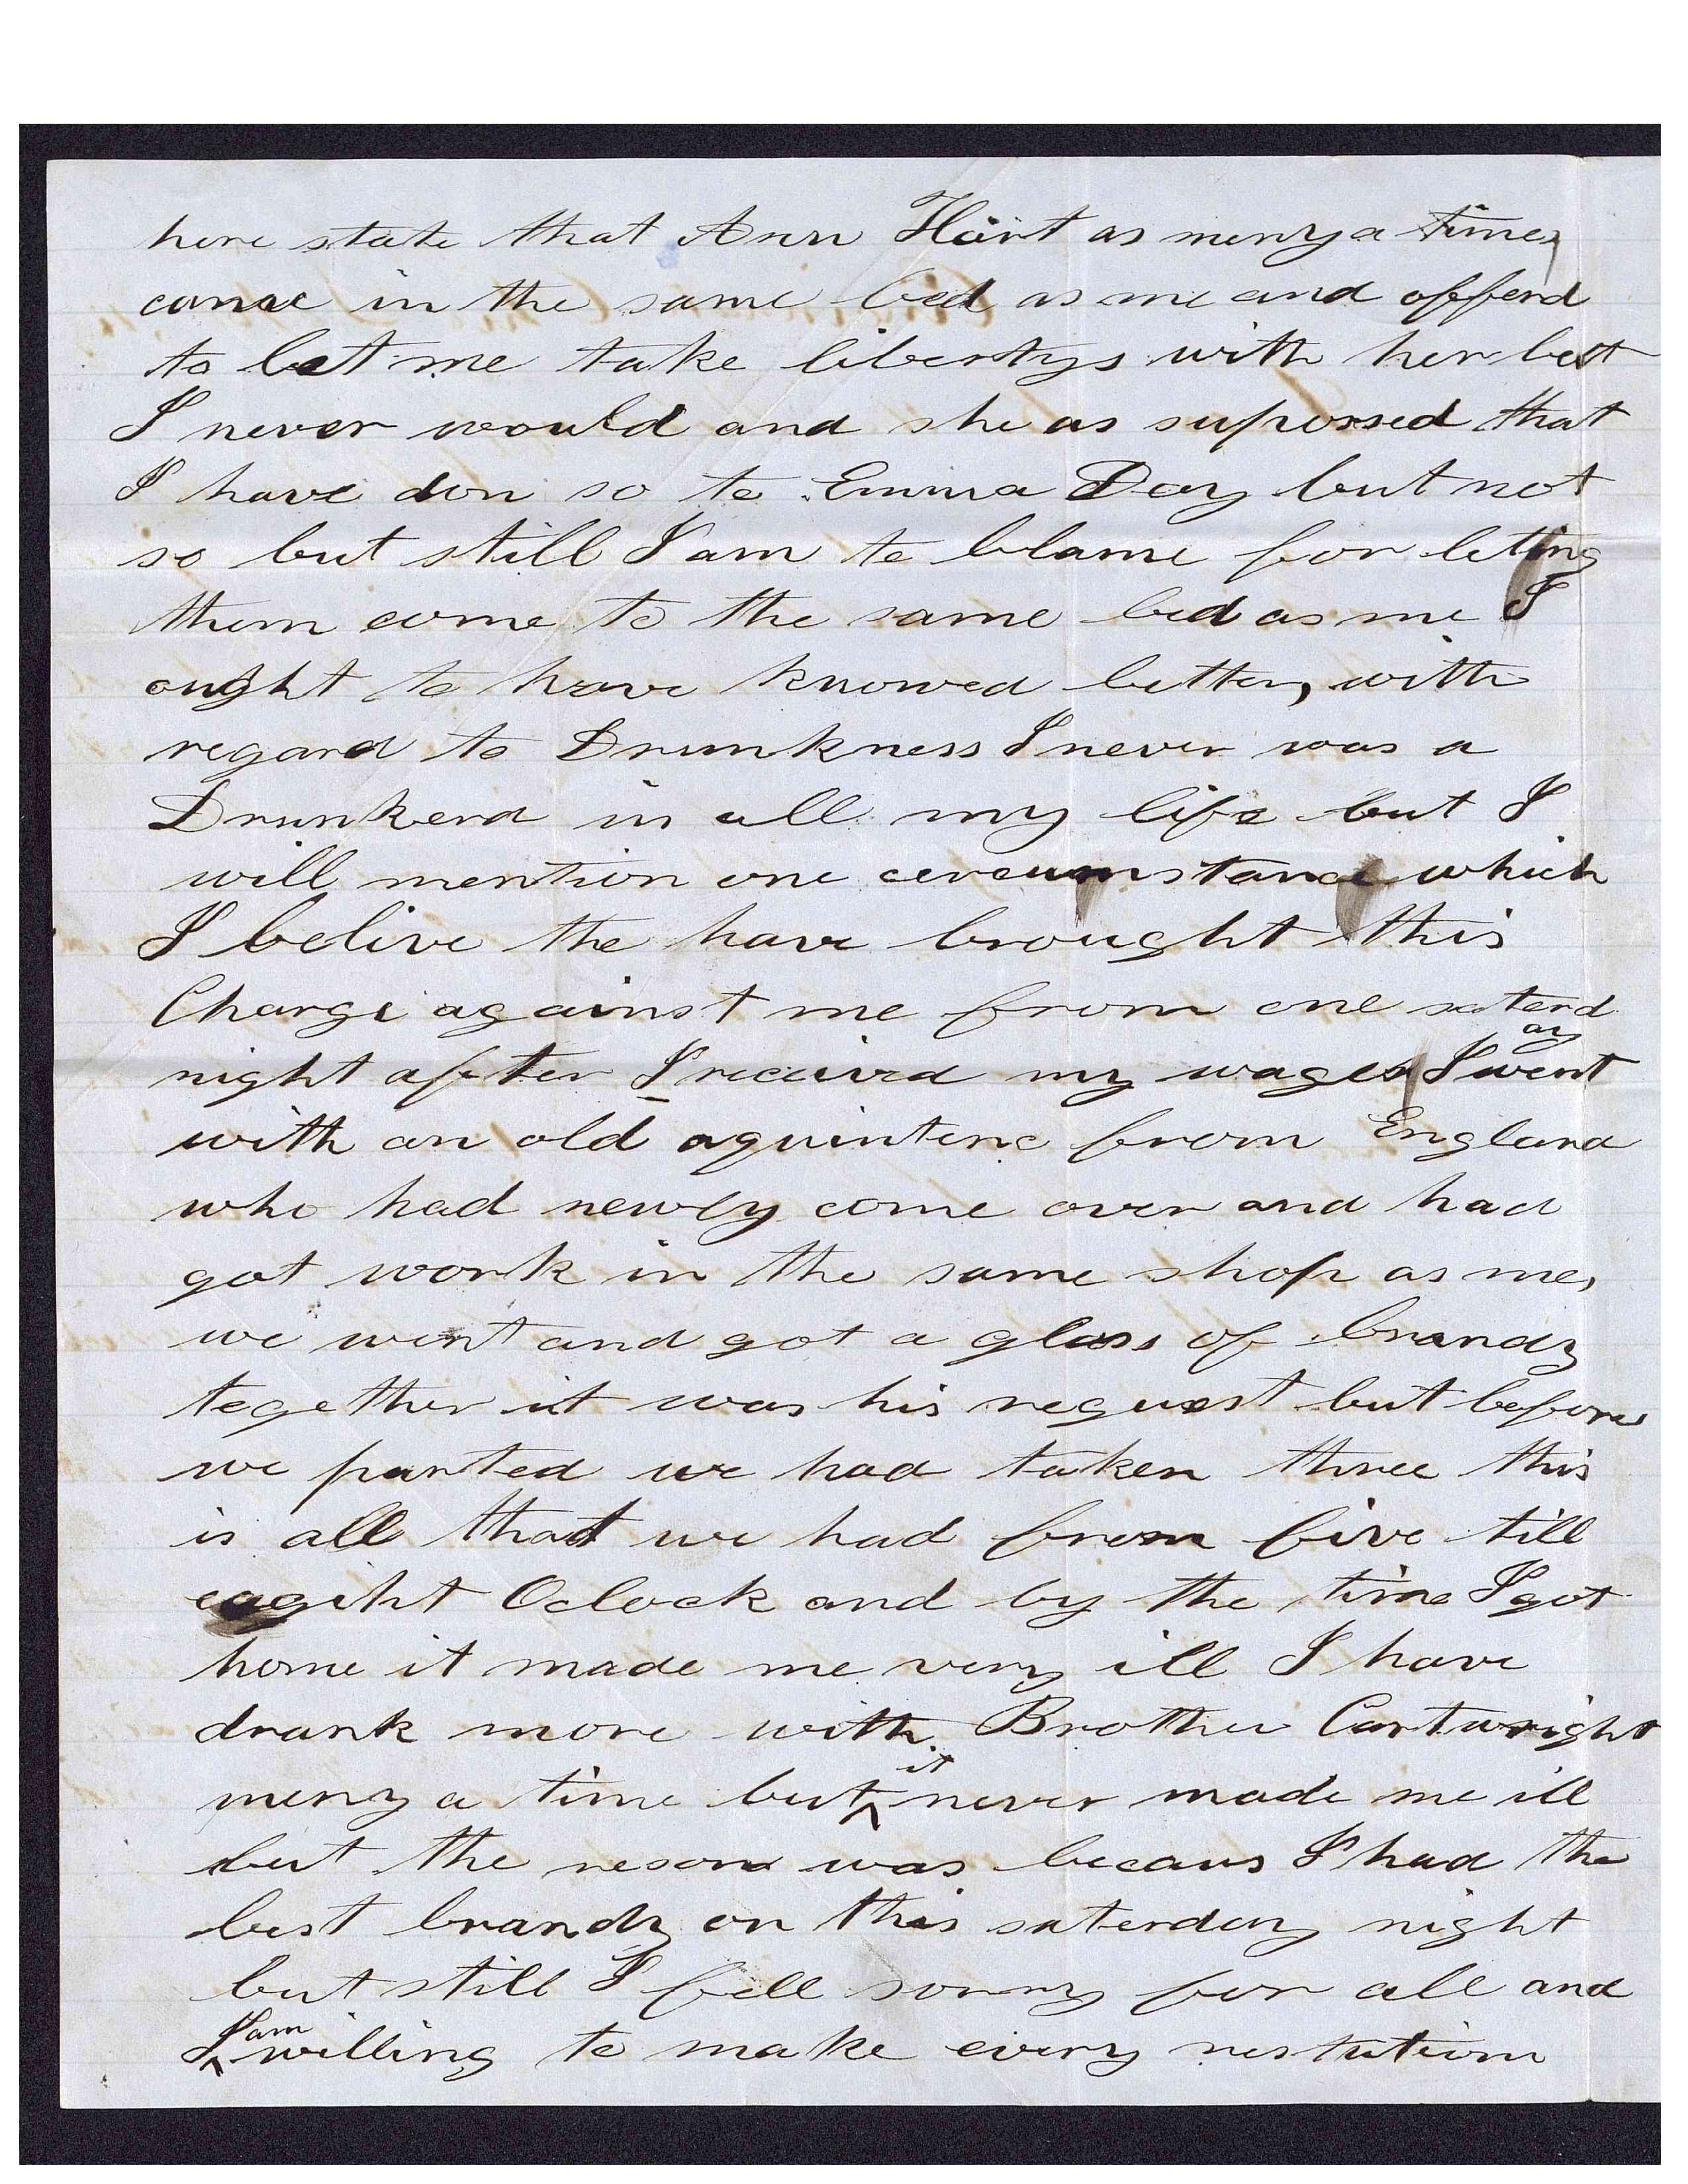 here state that Ann Hart as meny a times
come in the same bed as me and afferd
to let me take libertys with her but
I never would and she as suposed that
I have don so to Emma Day but not
so but still I am to blame for leting
them come to the same bed as me I
ought to have knowed better, with
regard to Drunkness I never was a
Drunkerd in all my life but I
will mention one cercumstance which
I belive the have brought this
Charge against me from one saterday
night after I received my wages I went
with an old aquintenc from England
who had newly come over and had
got work in the same shop as me,
we went and got a glass of brandy
together it was his request but before
we parted we had taken three this
is all that we had from five till
eagiht Oclock and by the time I got
home it made me very ill I have
drank more with Brother Cartwright
meny a time but it never made me ill
but the reson was becaus I had the
best brandy on this saterday night
but still I fell sorry for all and
I am willing to make every restution